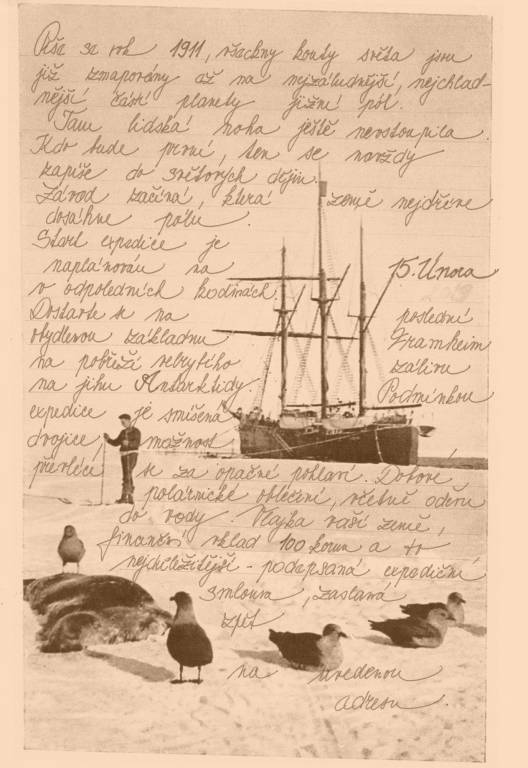 Píše se rok 1911, všechny kouty světa jsou
již zmapovány až na nejzáludnější, nejchlad-
nější část planety jižní pól.
Tam lidská noha ještě nevstoupila.
Kdo bude první, ten se navždy
zapíše do světových dějin.
Závod začíná, která země nejdříve
dosáhne pólu.
Start expedice je
naplánován na 15. Února
v odpoledních hodinách.
Dostavte se na poslední
obydlenou základnu Framheim
na pobřeží velrybího zálivu
na jihu Antarktidy. Podmínkou
expedice je smíšená
dvojice, možnost
převléci se za opačné pohlaví. Dobové
polárnické oblečení, včetně oděvu
do vody. Vlajka vaší země,
finanční vklad 100 korun a to
nejdůležitější - podepsaná expediční
smlouva, zaslaná
zpět
na uvedenou
adresu.